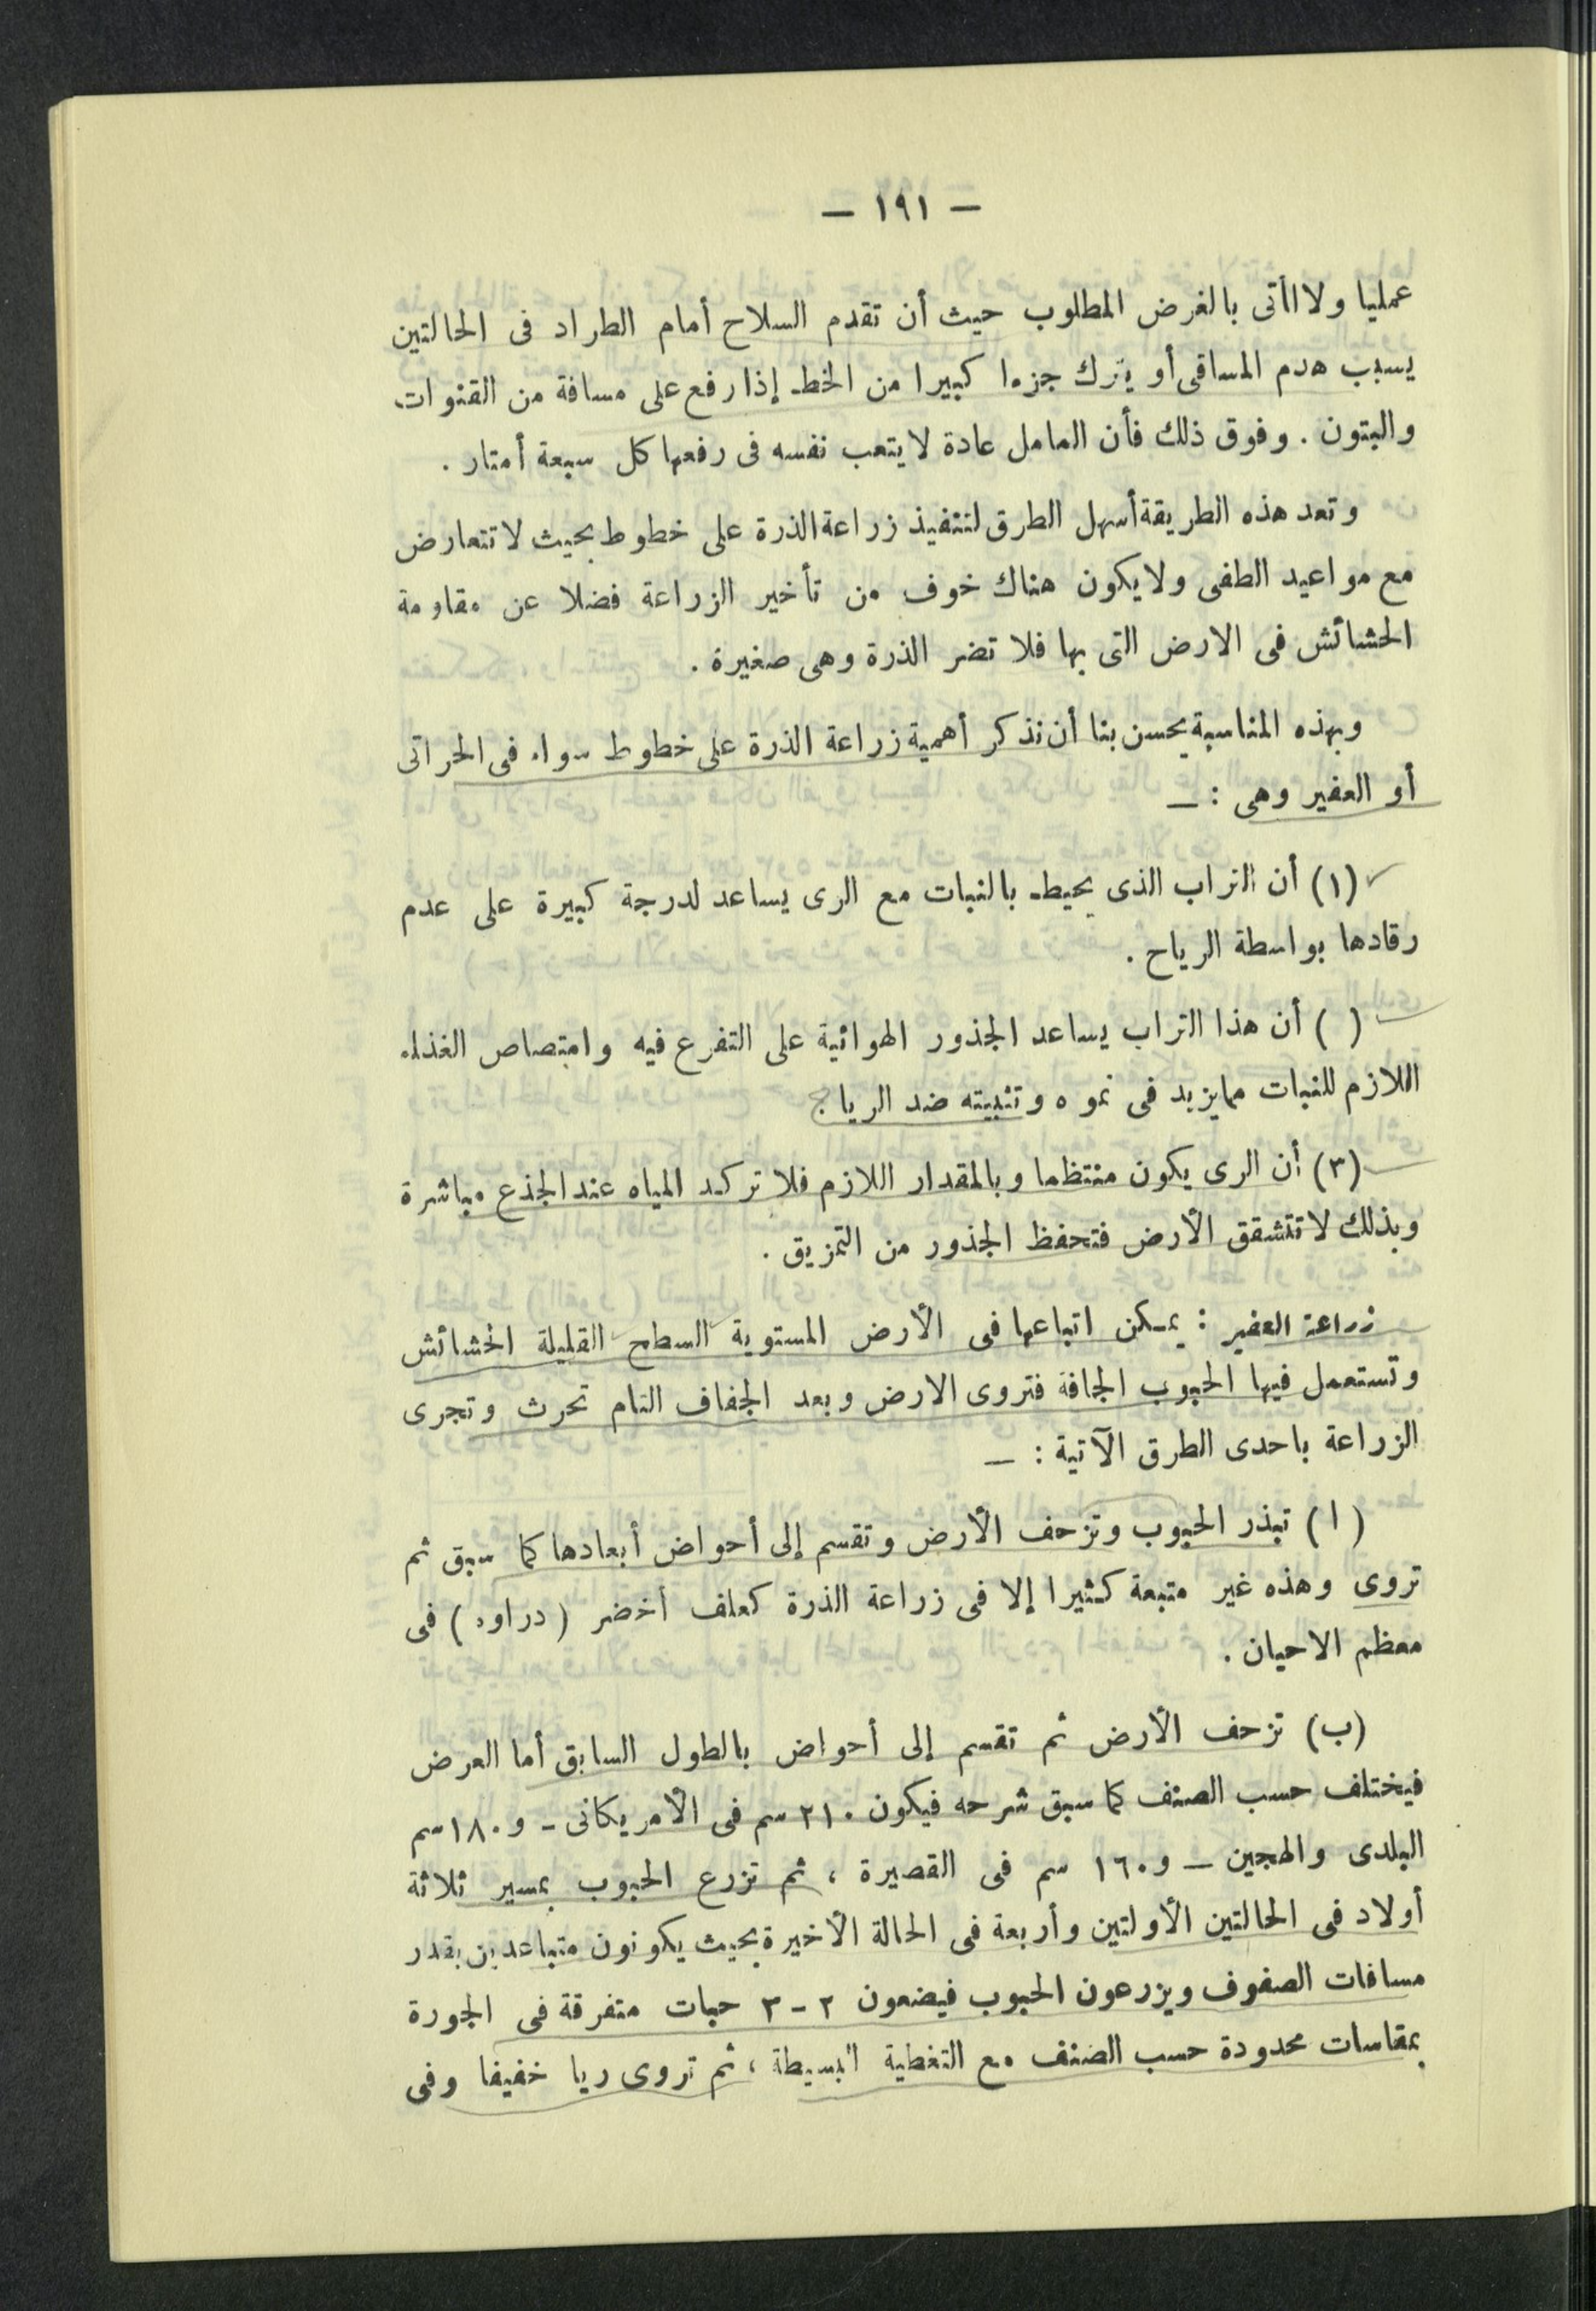 — ١٩١ —
عمليا ولا اأتى بالغرض المطلوب حيث أن تقدم السلاح أمام الطراد فى الحالتين
يسبب هدم المساقى أو يترك جزءا كبيرا من الخط إذا رفع على مسافة من القنوات
والبتون . وفوق ذلك فأن العامل عادة لا يتعب نفسه فى رفعها كل سبعة أمتار .
وتعد هذه الطريقة أسهل الطرق لتنفيذ زراعة الذرة على خطوط بحيث لا تتعارض
مع مواعيد الطفى ولا يكون هناك خوف من تأخير الزراعة فضلا عن مقاومة
الحشائش فى الارض التى بها فلا تضر الذرة وهى صغيرة .
وبهذه المناسبة يحسن بنا أن نذكر أهمية زراعة الذرة على خطوط سواء فى الحراتى
أو العفير وهى : —
(١) أن التراب الذى يحيط بالنبات مع الرى يساعد لدرجة كبيرة على عدم
رقادها بواسطة الرياح .
( ) أن هذا التراب يساعد الجذور الهوائية على التفرع فيه وامتصاص الغذاء
اللازم للنبات مما يزيد فى نموه وتثبيته ضد الرياح
(٣) أن الرى يكون منتظما وبالمقدار اللازم فلا تركد المياه عند الجذع مباشرة
وبذلك لا تتشقق الأرض فتحفظ الجذور من التمزيق .
زراعة العفير : يمكن اتباعها فى الأرض المستوية السطح القليلة الحشائش
وتستعمل فيها الحبوب الجافة فتروى الارض وبعد الجفاف التام تحرث وتجرى
الزراعة باحدى الطرق الآتية : —
(ا) تبذر الحبوب وتزحف الأرض وتقسم إلى أحواض أبعادها كما سبق ثم
تروى وهذه غير متبعة كثيرا إلا فى زراعة الذرة كعلف أخضر (دراوه) فى
معظم الاحيان .
(ب) تزحف الأرض ثم تقسم إلى أحواض بالطول السابق أما العرض
فيختلف حسب الصنف كما سبق شرحه فيكون ٢١٠ سم فى الأمريكانى - و ١٨٠ سم
البلدى والهجين — و ١٦٠ سم فى القصيرة ، ثم تزرع الحبوب بمسير ثلاثة
أولاد فى الحالتين الأولتين وأربعة فى الحالة الأخيرة بحيث يكونون متباعدين بقدر
مسافات الصفوف ويزرعون الحبوب فيضعون ٢ - ٣ حبات متفرقة فى الجورة
بمقاسات محدودة حسب الصنف مع التغطية البسيطة ، ثم تروى ريا خفيفا وفى